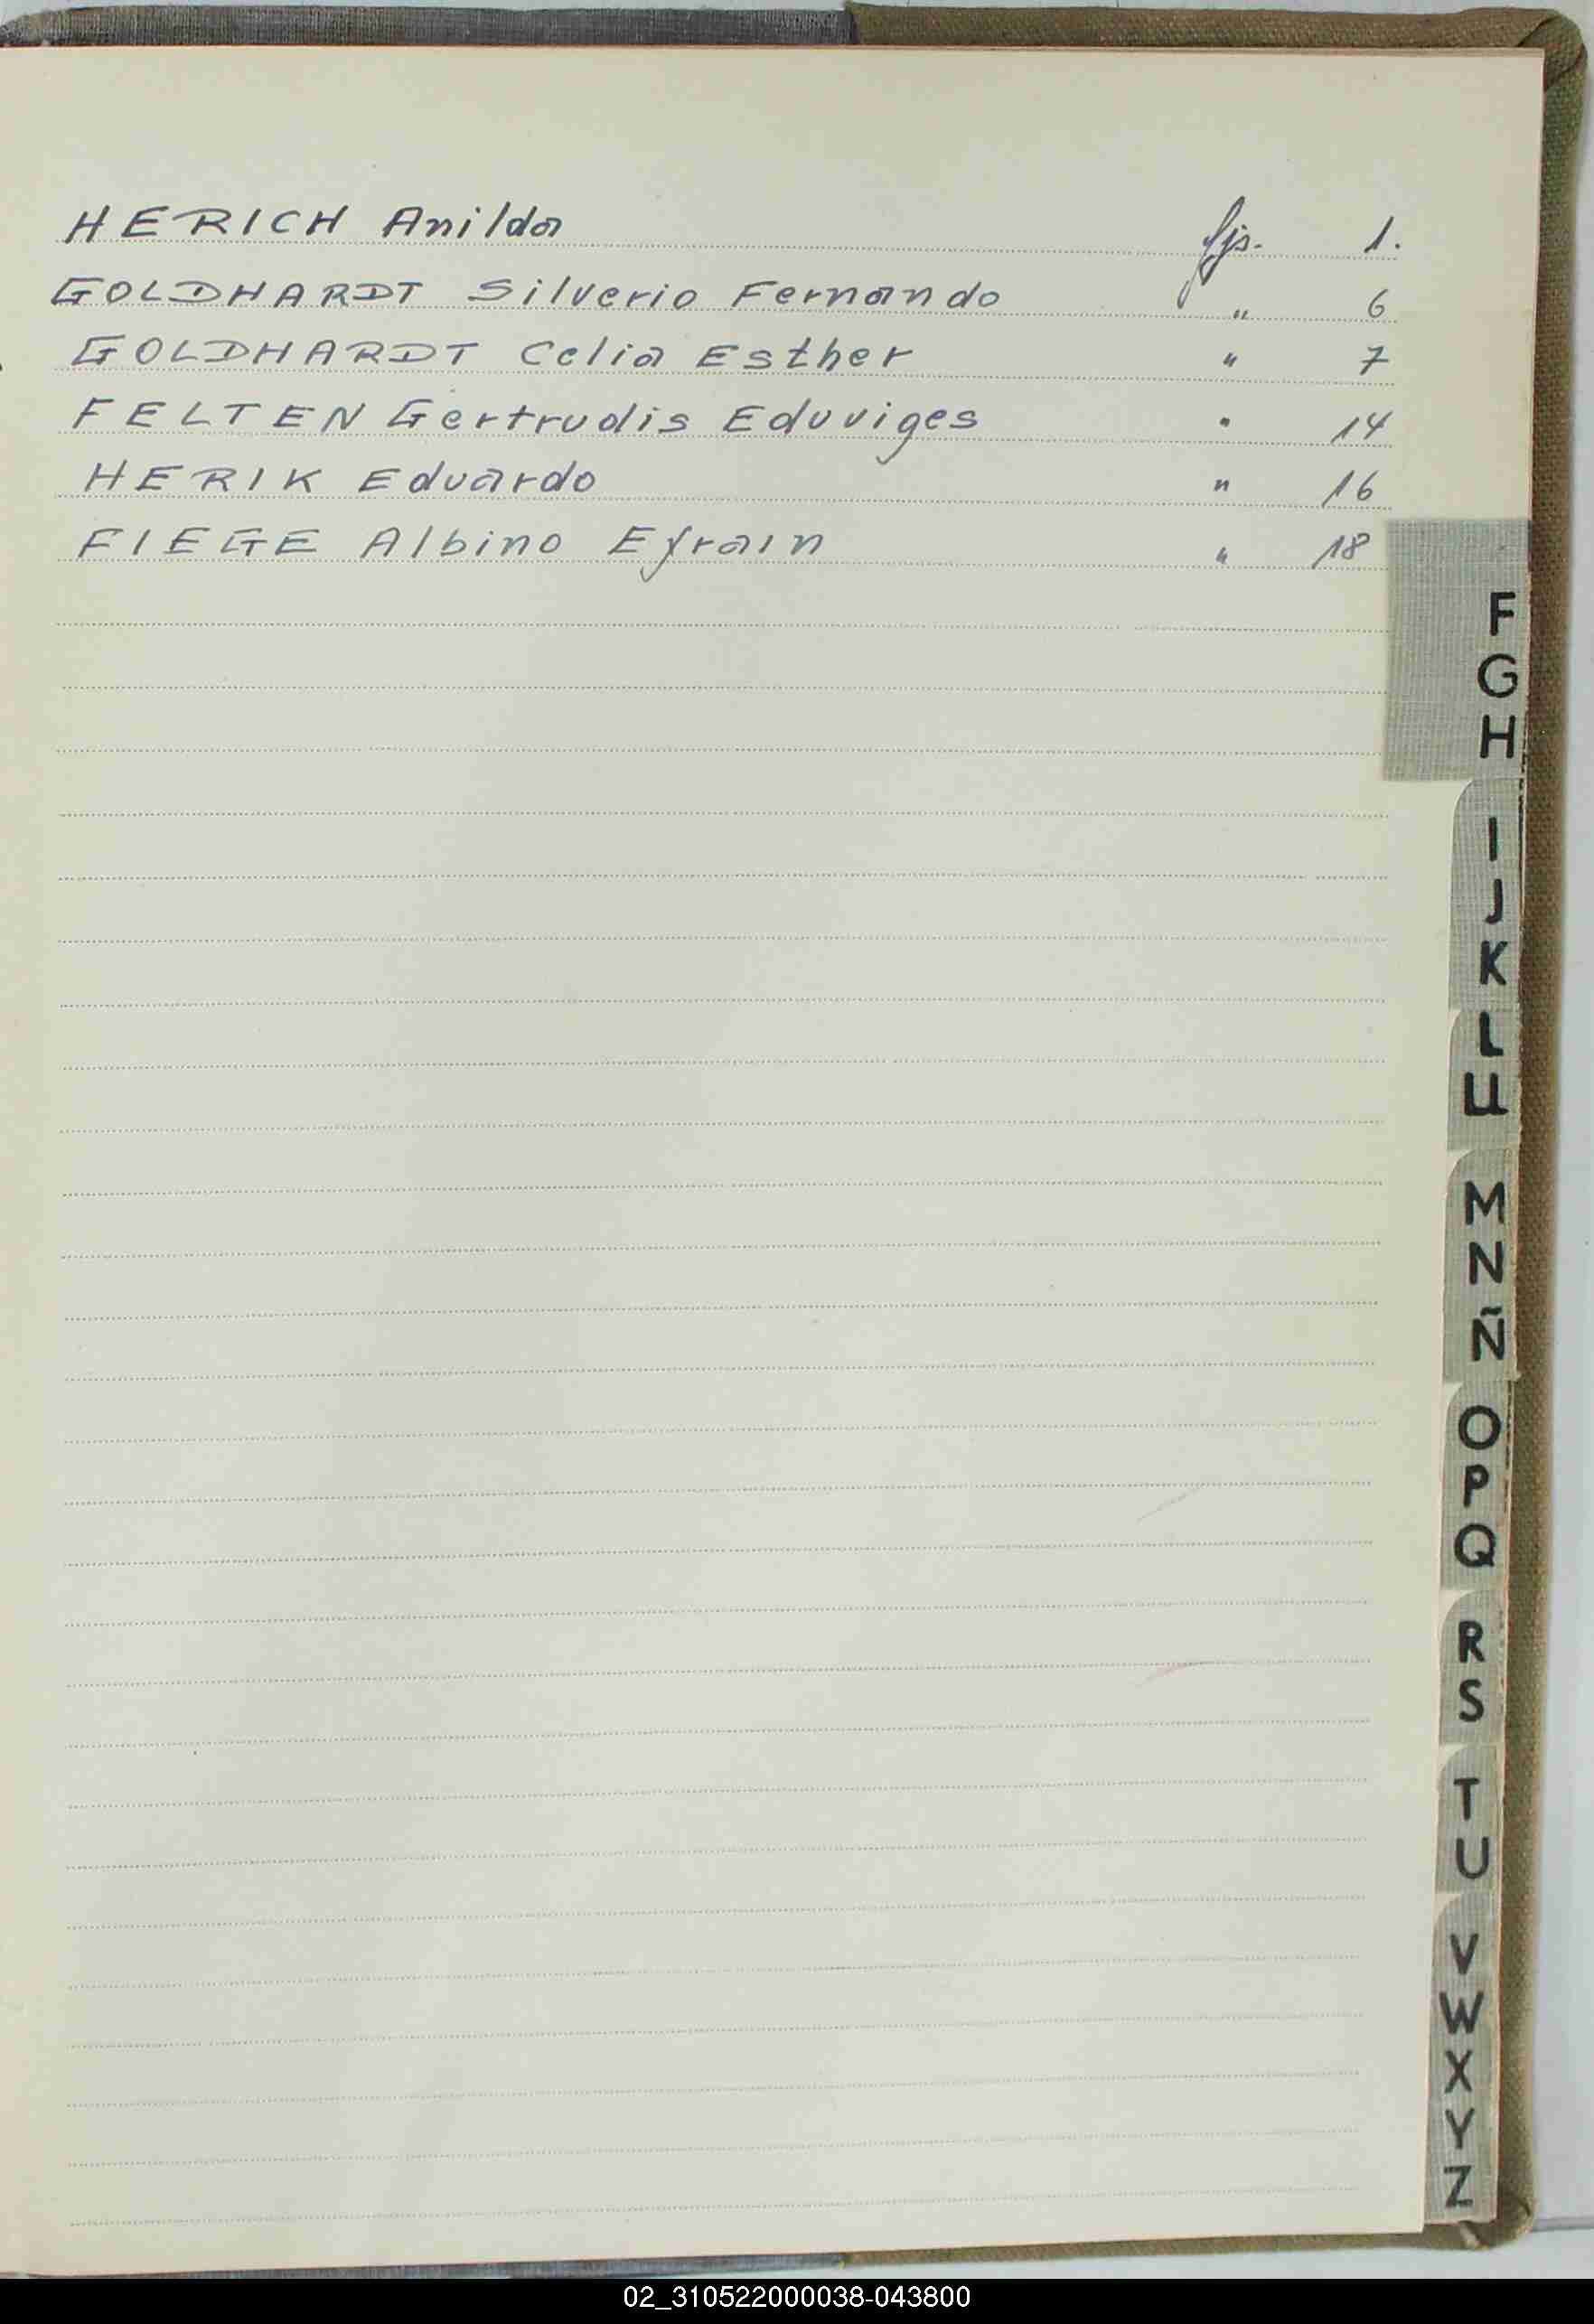 HERICH Anilda fjs. 1.
GOLDHARDT Silverio Fernando " 6
GOLDHARDT Celia Esther " 7
FELTEN Gertrudis Eduviges " 14
HERIK Eduardo " 16
FIEGE Albino Efrain " 18
F
G
H
I
J
K
L
LL
M
N
Ñ
O
P
Q
R
S
T
U
V
W
X
Y
Z
02_310522000038-043800